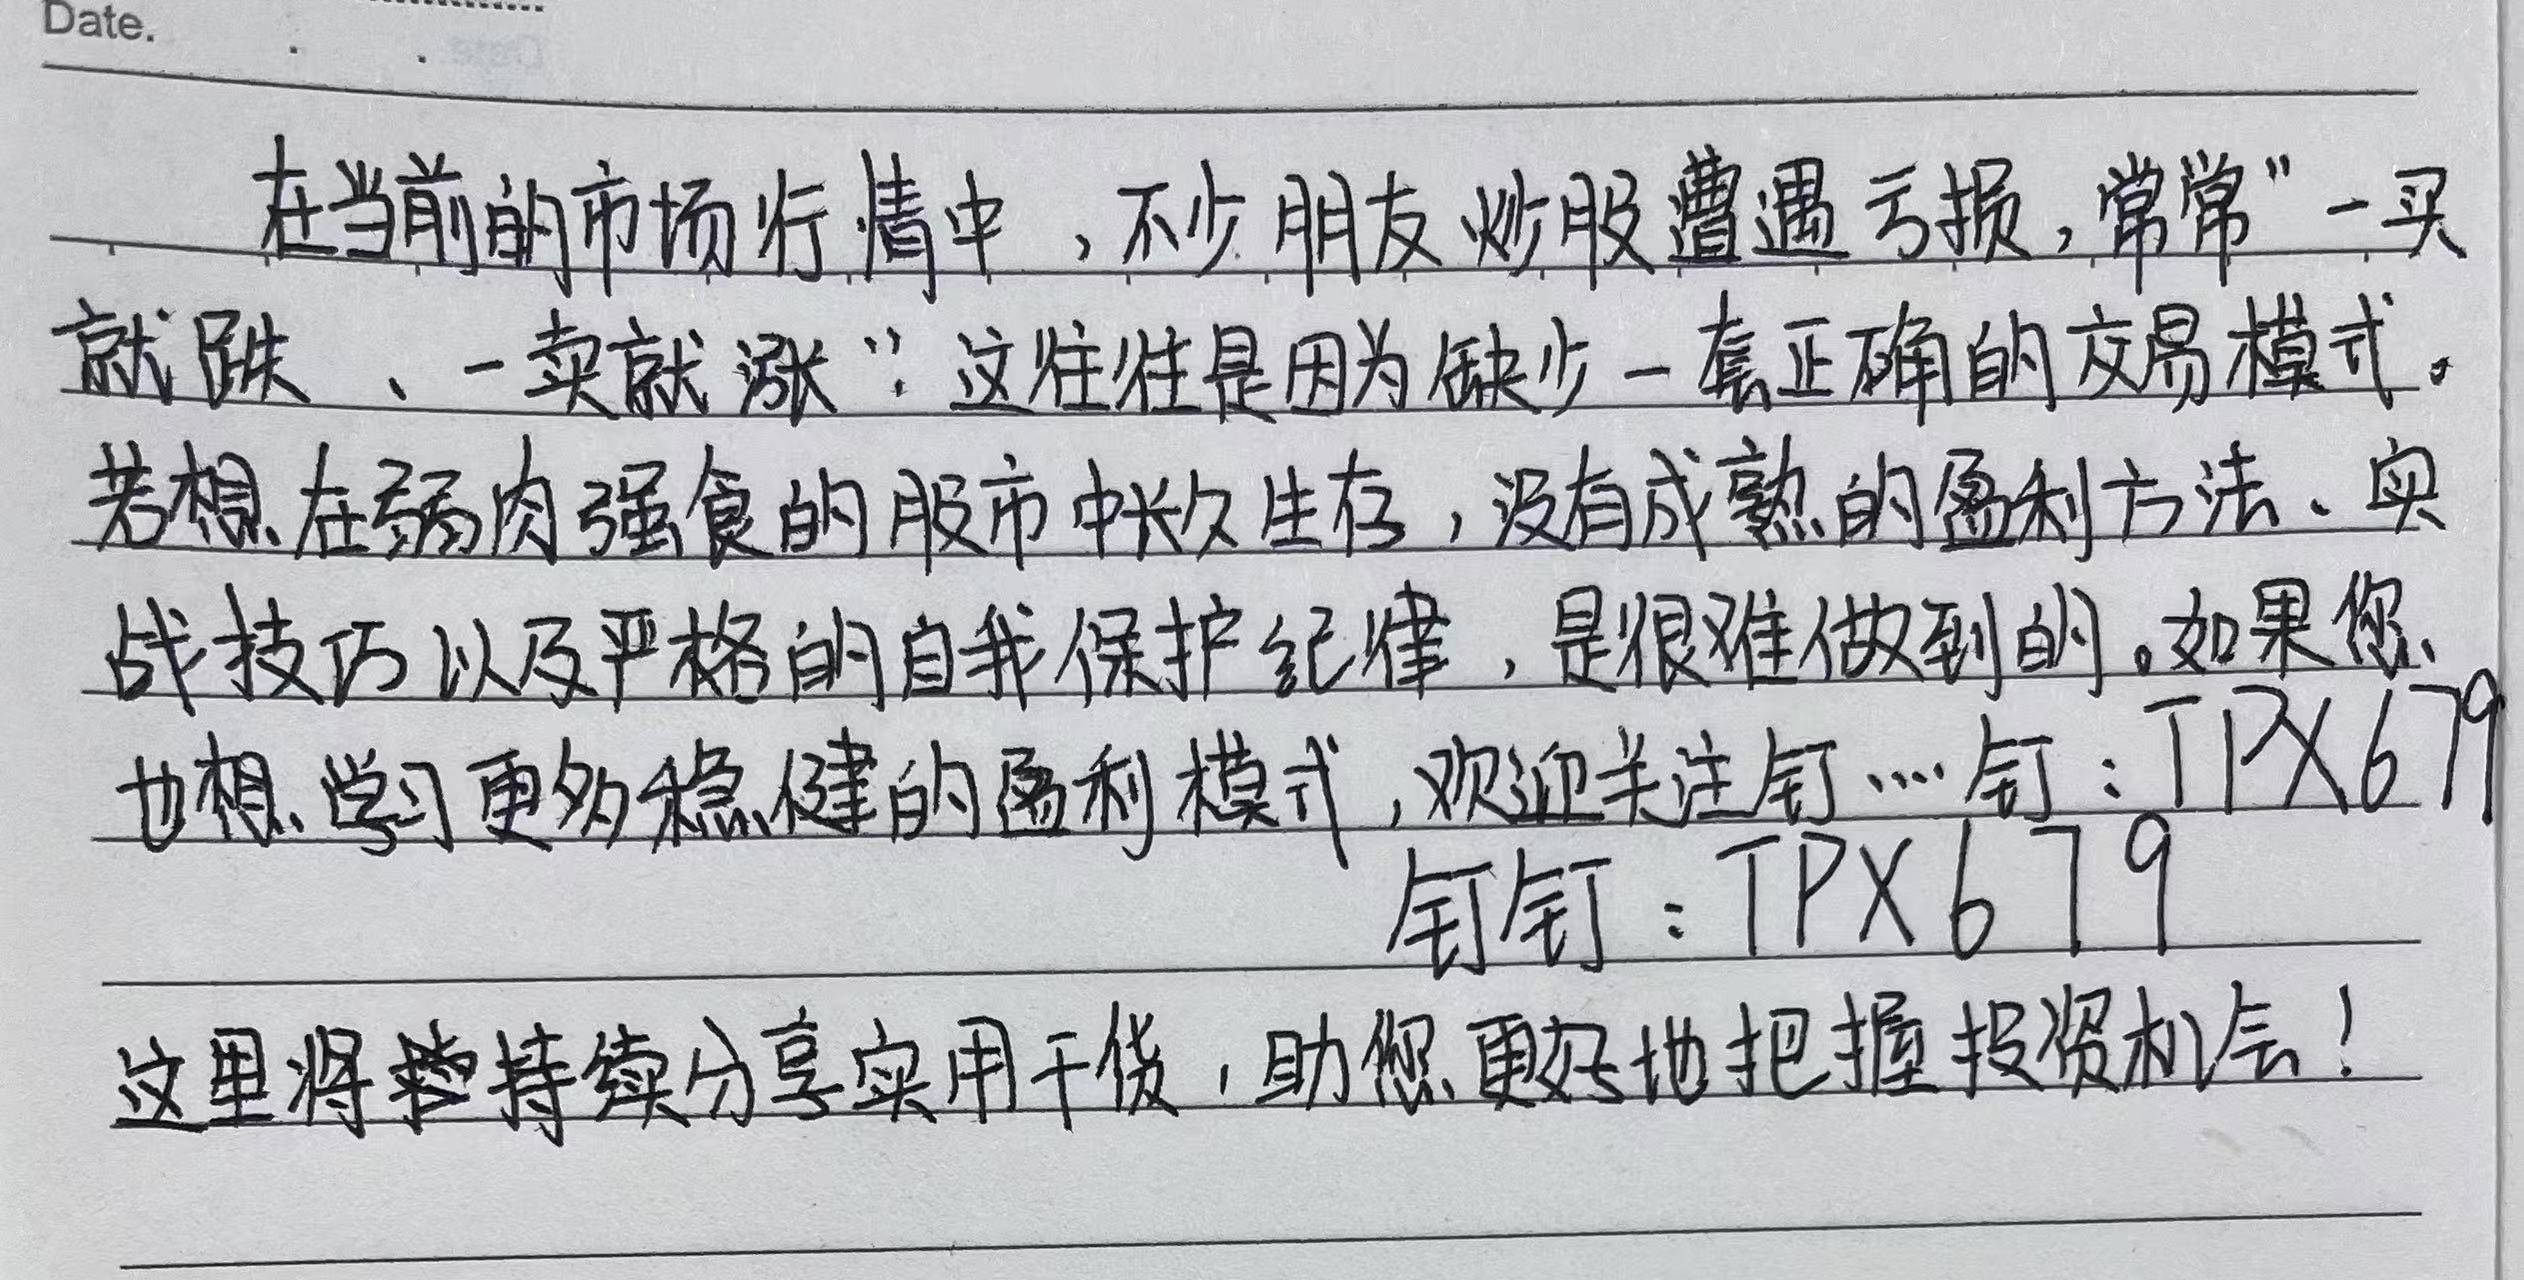 Date.
在当前的市场行情中，不少朋友炒股遭遇亏损，常常"一买
就跌、一卖就涨"。这往往是因为缺少一套正确的交易模式。
若想在弱肉强食的股市中长久生存，没有成熟的盈利方法、实
战技巧以及严格的自我保护纪律，是很难做到的。如果您
也想学习更多稳健的盈利模式，欢迎关注钉…钉：TPX679
钉钉：TPX679
这里将持续分享实用干货，助您更好地把握投资机会！